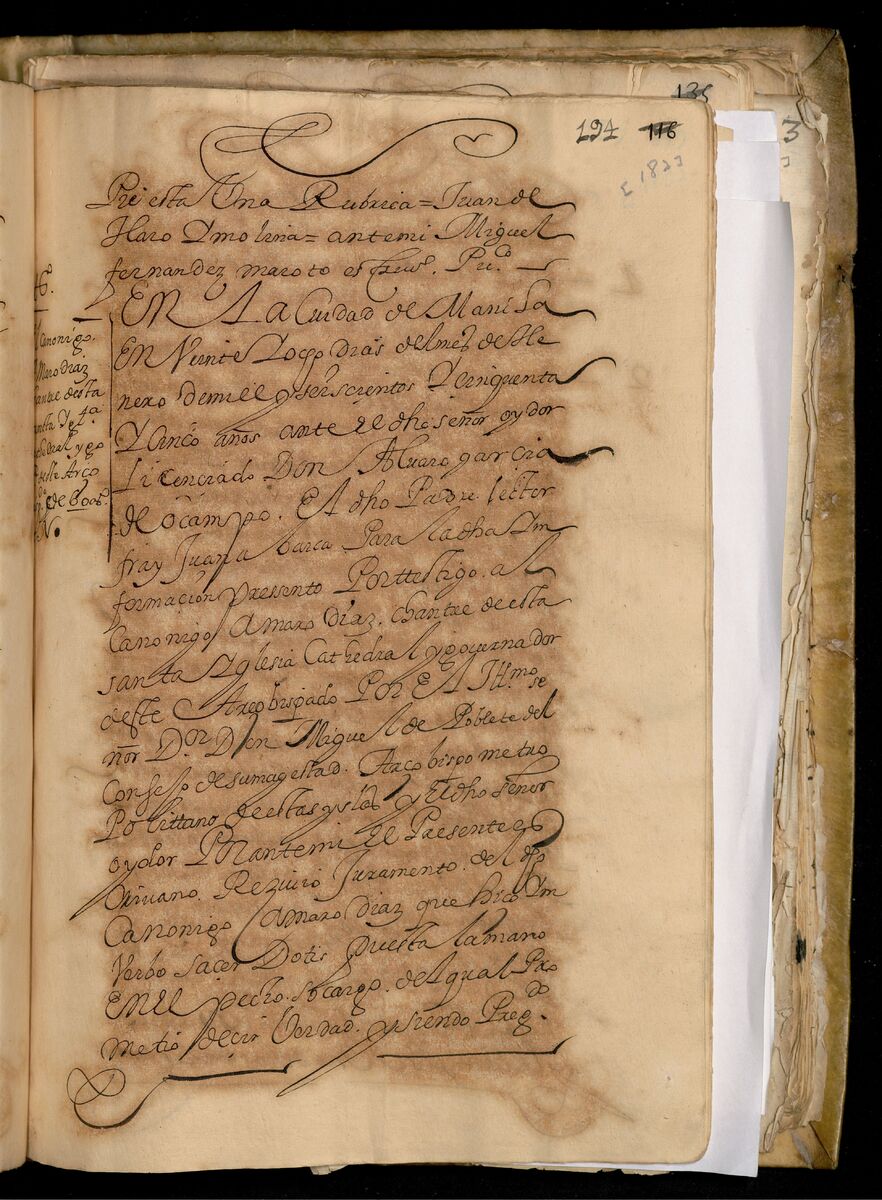 135
194 116
[182]
3
Pre esta Una Rubrica = Juan de
Haro Y molina = ante mi Miguel
fernandez maroto escrivo. Puco.
EN La Ciudad de Manila
EN Veinte Y ocho dias del mes de He
nero de mill y seiscientos Y cinquenta
Y cinco años ante el dho señor oydor
Licenciado Don Alvaro garcia
de Ocampo. El dho Padre lector
fray Juan abarca Para la dha Im
formaçion pressento Por ttestigo. al
Canonigo Amaro diaz. chantre de esta
santa Yglesia Cathedral y governador
deste Arcobispado Por El Illmo se
ñor Dor Don Miguel de Poblete del
Consejo de su magestad. Arcobispo metro
Polittano de estas yslas y El dho señor
oydor Por ante mi el Presente es
crivano. Reziuio Juramento. del dho
Canonigo Amaro diaz que hiço Im
Verbo sacer Dotis puesta la mano
EN El pecho. so cargo. del qual Pro
metio deçir Verdad. y siendo Pregdo.
to.
Canonigo.
Amaro diaz
chantre desta
santa Ygla
cathedral y go
deste Arco
de 600s.
N.